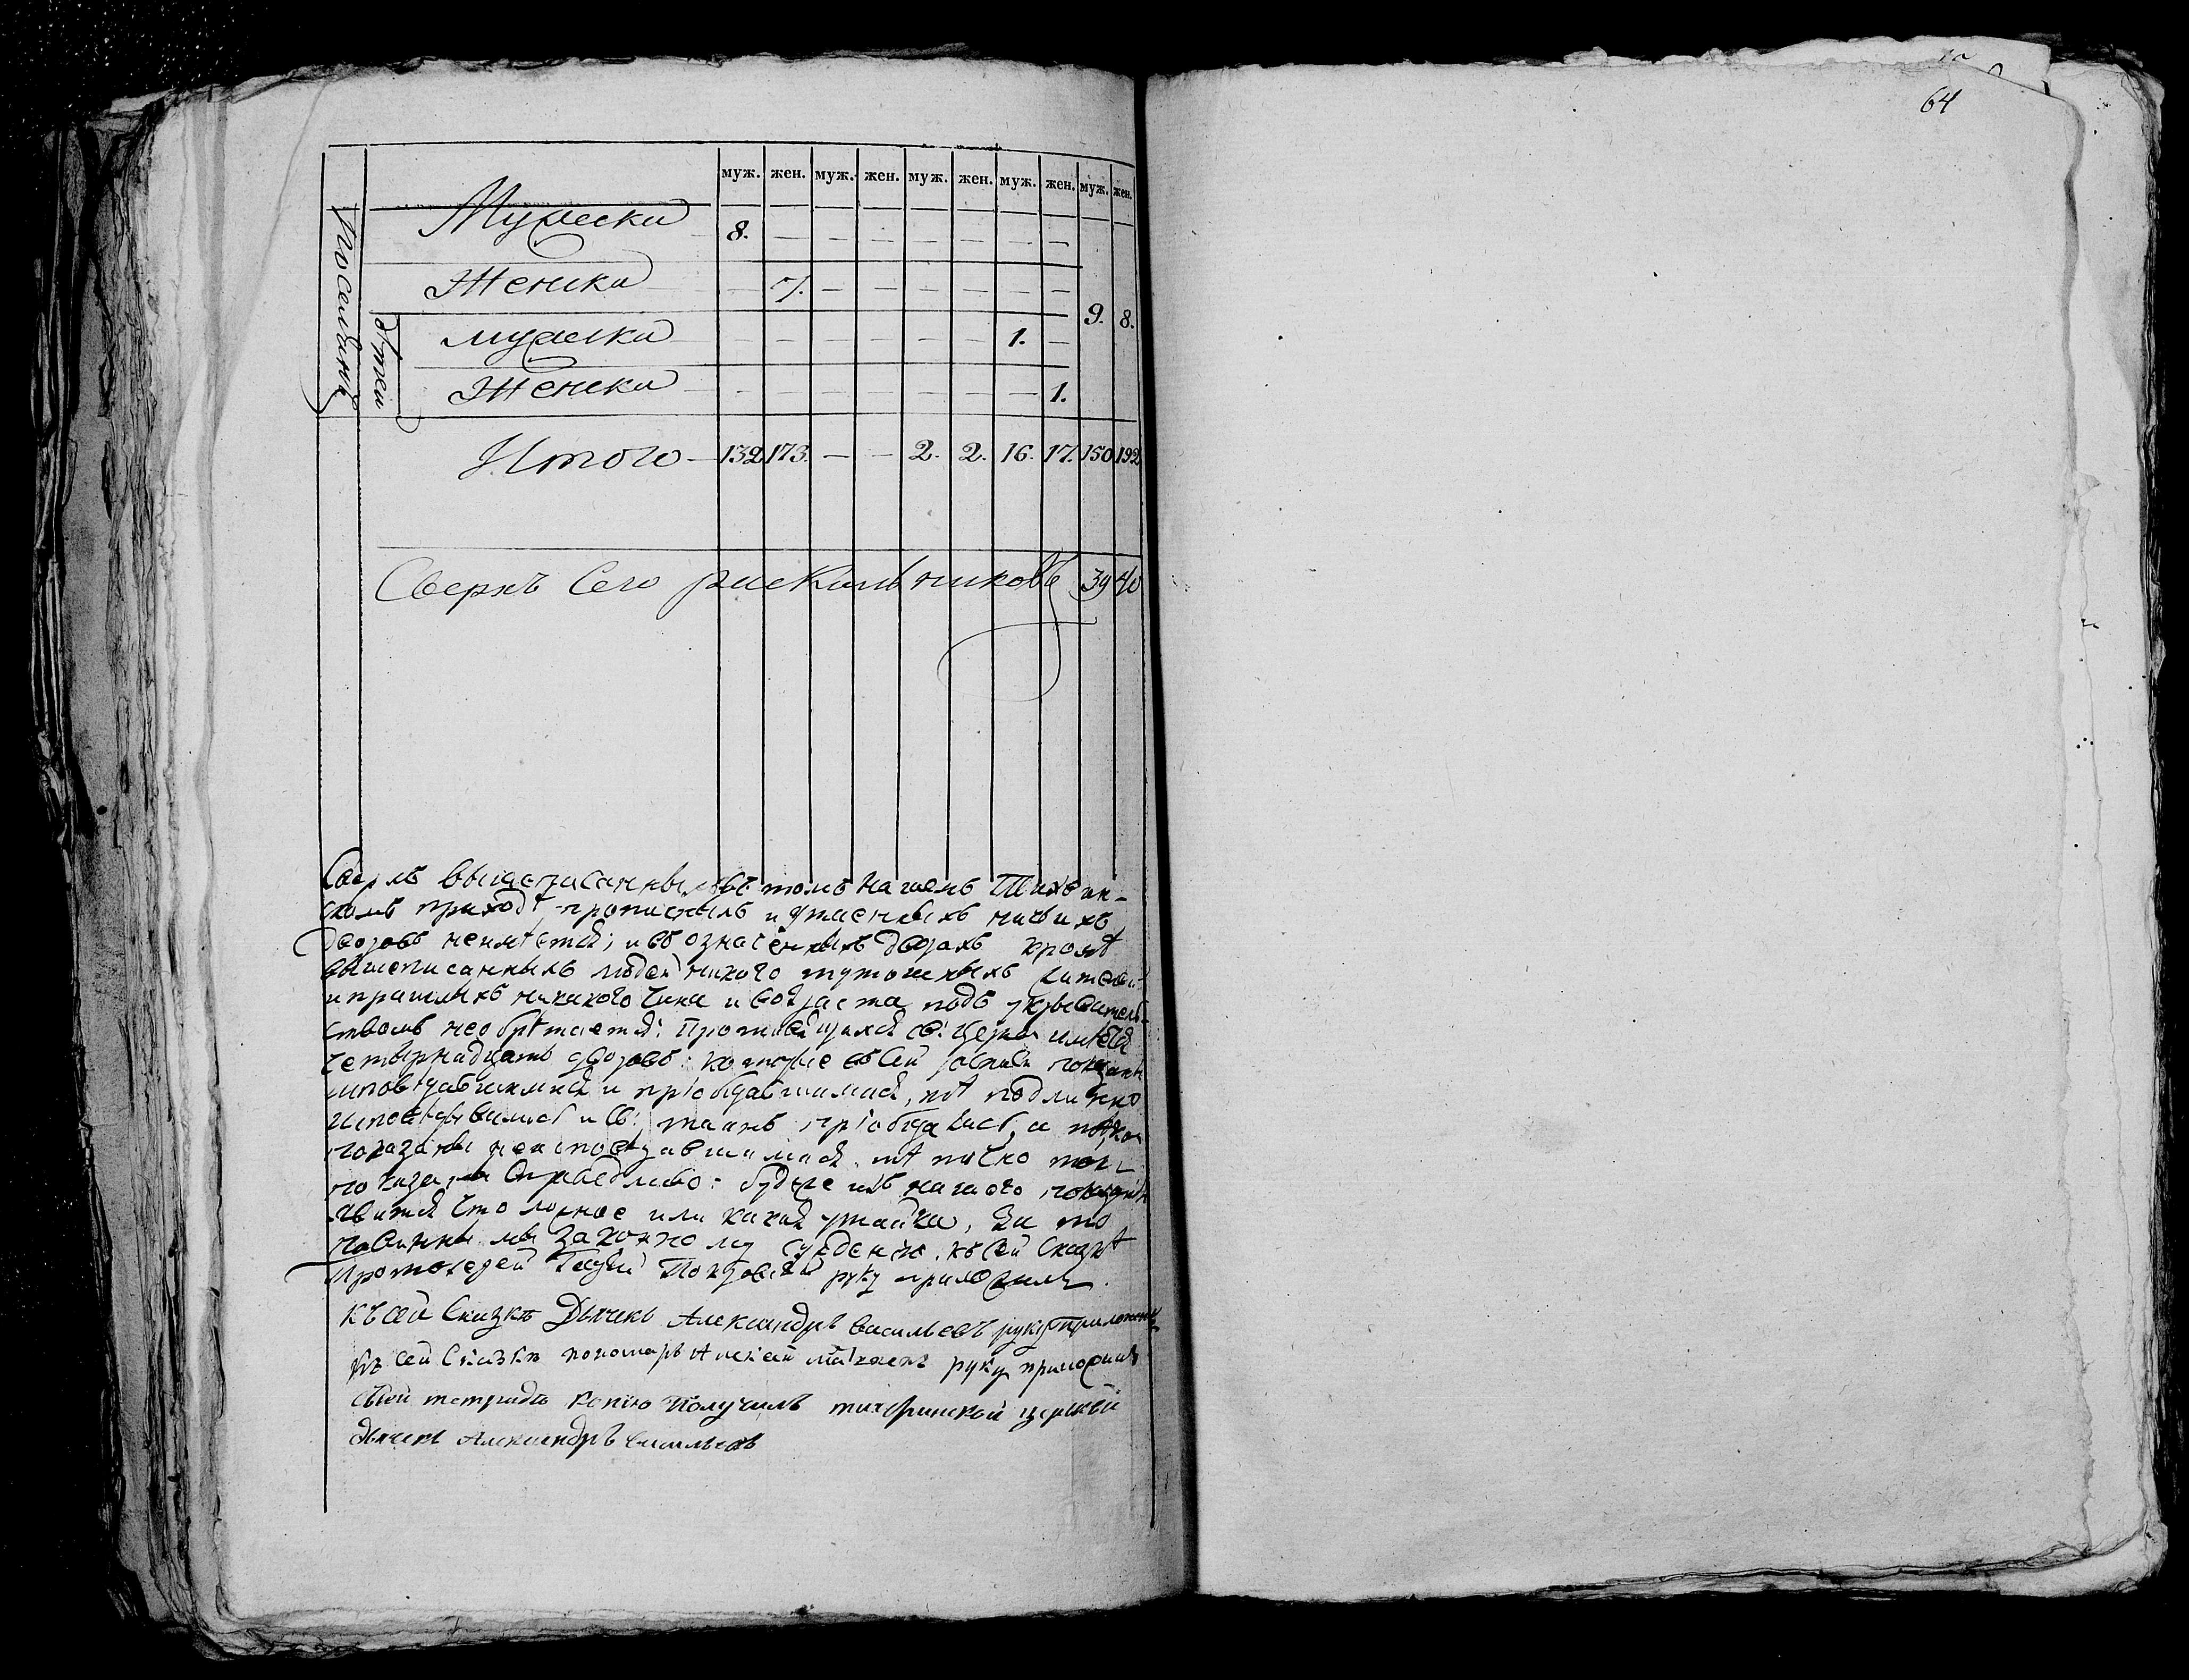 64
муж. жен. муж. жен. муж. жен. муж. жен. муж. жен.
Поселянъ
Мужеска 8. — — — — — — —
Женска — 7. — — — — — —
9. 8.
Дѣтей
мужеска — — — — — — 1. —
Женска — — — — — — — 1.
Итого — 132 173. — — 2. 2. 16. 17. 150 192
Сверхъ Сего раскольниковъ 39 40
Сверхъ вышеписанныхъ въ томъ нашемъ Тихвин-
скомъ приходѣ, прописныхъ и утаенныхъ ничьихъ
дворовъ неимѣется; и въ означенныхъ дворахъ кромѣ
вышеписанныхъ людей никого тутошныхъ жителей
и пришлыхъ никакого чина и возраста подъ укрывательствомъ необрѣтается:
четырнадцать дворовъ: которые въ сей показаны
исповѣдавшимися и пріобщавшимися, тѣ подлинно
исповѣдывались и св: таинъ пріобщались, а кои
показаны неисповѣдавшимися, тѣ точно
справедливо: будеже изъ нашего
явится что ложное или какая утайка, за то
повинны мы законному сужденію. къ сей Сказкѣ
Протоіерей руку приложилъ.
Къ сей Сказкѣ Дьячекъ Александръ Васильевъ руку приложилъ
Къ сей Сказкѣ пономарь Алексѣй руку приложилъ
Сѣей тетради копію Получилъ тихфинской церькви
дьячекъ Александръ Васильевъ